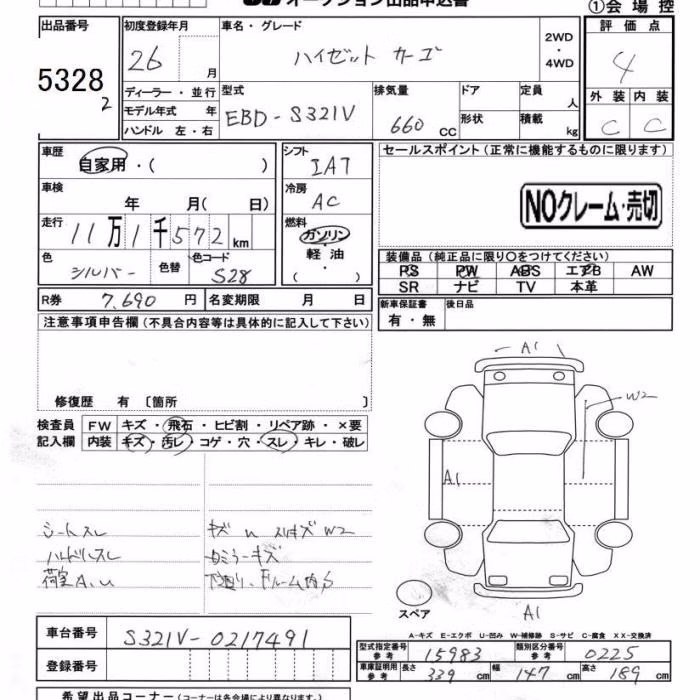 オークション出品申込書
①会場控
出品番号 5328 2
初度登録年月 26 月
車名・グレード ハイゼット カーゴ
2WD・4WD
評価点 4
ディーラー・並行
モデル年式 年
ハンドル 左・右
型式 EBD-S321V
排気量 660 CC
ドア 形状
定員 人
積載 kg
外装 内装
C C
車歴 自家用・( )
シフト IAT
セールスポイント(正常に機能するものに限ります)
車検 年 月( 日)
冷房 AC
NOクレーム・売切
走行 11万1千572km
燃料 ガソリン・軽油・( )
色 シルバー 色替 色コード S28
装備品(純正品に限り○をつけてください)
PS PW ABS エアB AW
SR ナビ TV 本革
R券 7,690円 名変期限 月 日
新車保証書 有・無 後日品
注意事項申告欄(不具合内容等は具体的に記入して下さい)
修復歴 有〔箇所 〕
検査員記入欄
FW キズ・飛石・ヒビ割・リペア跡・×要
内装 キズ・汚レ・コゲ・穴・スレ・キレ・破レ
A1
W2
A1
A1
スペア
シートスレ
ハンドルスレ
荷室A.U
A-キズ E-エクボ U-凹み W-補修跡 S-サビ C-腐食 XX-交換済
車台番号 S321V-0217491
登録番号
型式指定番号 参考 15983 類別区分番号 参考 0225
車庫証明用 参考 長さ 339 cm 幅 147 cm 高さ 189 cm
希望出品コーナー(コーナーは各会場により異なります。)